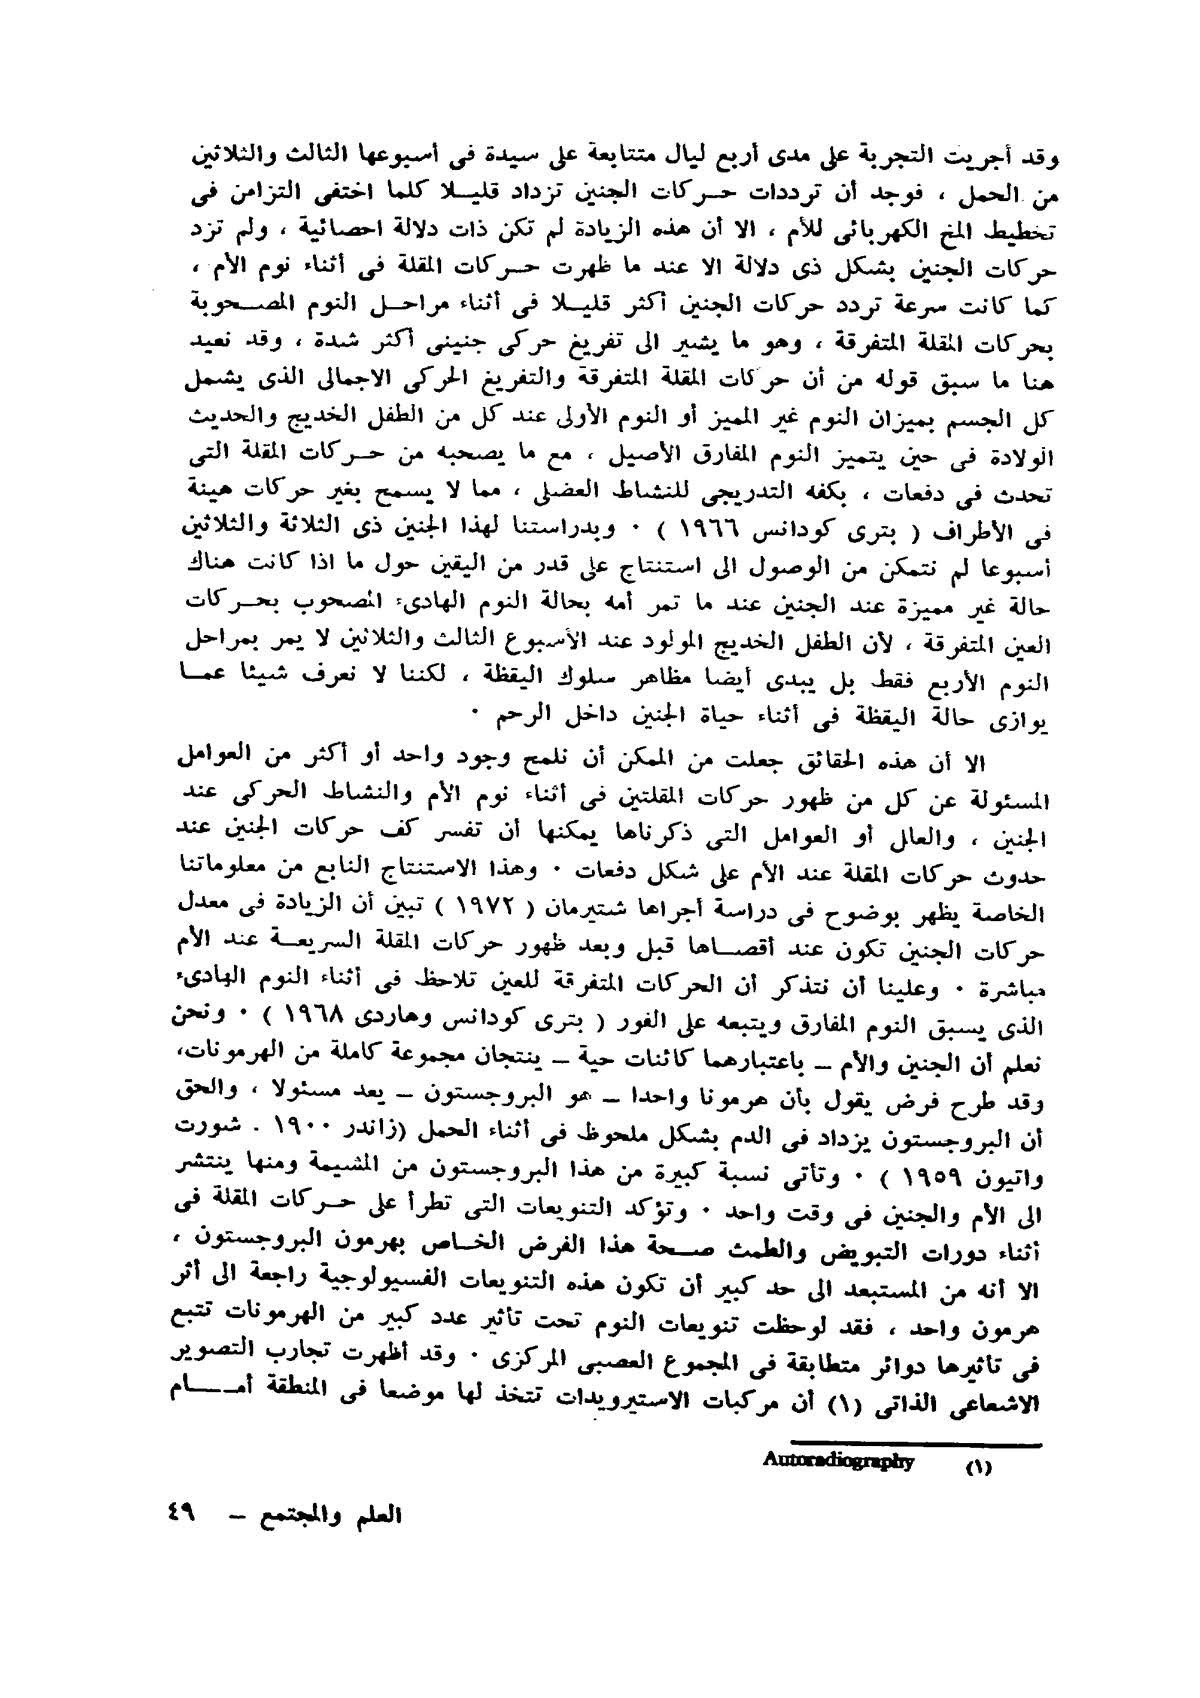 وقد أجريت التجربة على مدى أربع ليال متتابعة على سيدة فى أسبوعها الثالث والثلاثين
من الحمل ، فوجد أن ترددات حركات الجنين تزداد قليلا كلما اختفى التزامن فى
تخطيط المخ الكهربائى للأم ، الا أن هذه الزيادة لم تكن ذات دلالة احصائية ، ولم تزد
حركات الجنين بشكل ذى دلالة الا عند ما ظهرت حركات المقلة فى أثناء نوم الأم ،
كما كانت سرعة تردد حركات الجنين أكثر قليلا فى أثناء مراحل النوم المصحوبة
بحركات المقلة المتفرقة ، وهو ما يشير الى تفريغ حركى جنينى أكثر شدة ، وقد نعيد
هنا ما سبق قوله من أن حركات المقلة المتفرقة والتفريغ الحركى الاجمالى الذى يشمل
كل الجسم يميزان النوم غير المميز أو النوم الأولى عند كل من الطفل الخديج والحديث
الولادة فى حين يتميز النوم المفارق الأصيل ، مع ما يصحبه من حركات المقلة التى
تحدث فى دفعات ، بكفه التدريجى للنشاط العضلى ، مما لا يسمح بغير حركات هينة
فى الأطراف ( بترى كودانس ١٩٦٦ ) ٠ وبدراستنا لهذا الجنين ذى الثلاثة والثلاثين
أسبوعا لم نتمكن من الوصول الى استنتاج على قدر من اليقين حول ما اذا كانت هناك
حالة غير مميزة عند الجنين عند ما تمر أمه بحالة النوم الهادىء المصحوب بحركات
العين المتفرقة ، لأن الطفل الخديج المولود عند الأسبوع الثالث والثلاثين لا يمر بمراحل
النوم الأربع فقط بل يبدى أيضا مظاهر سلوك اليقظة ، لكننا لا نعرف شيئا عما
يوازى حالة اليقظة فى أثناء حياة الجنين داخل الرحم ٠
الا أن هذه الحقائق جعلت من الممكن أن نلمح وجود واحد أو أكثر من العوامل
المسئولة عن كل من ظهور حركات المقلتين فى أثناء نوم الأم والنشاط الحركى عند
الجنين ، والعالل أو العوامل التى ذكرناها يمكنها أن تفسر كف حركات الجنين عند
حدوث حركات المقلة عند الأم على شكل دفعات ٠ وهذا الاستنتاج النابع من معلوماتنا
الخاصة يظهر بوضوح فى دراسة أجراها شتيرمان ( ١٩٧٢ ) تبين أن الزيادة فى معدل
حركات الجنين تكون عند أقصاها قبل وبعد ظهور حركات المقلة السريعة عند الأم
مباشرة ٠ وعلينا أن نتذكر أن الحركات المتفرقة للعين تلاحظ فى أثناء النوم الهادىء
الذى يسبق النوم المفارق ويتبعه على الفور ( بترى كودانس وهاردى ١٩٦٨ ) ٠ ونحن
نعلم أن الجنين والأم – باعتبارهما كائنات حية – ينتجان مجموعة كاملة من الهرمونات،
وقد طرح فرض يقول بأن هرمونا واحدا – هو البروجستون – يعد مسئولا ، والحق
أن البروجستون يزداد فى الدم بشكل ملحوظ فى أثناء الحمل (زاندر ١٩٠٠ . شورت
واتيون ١٩٥٩ ) ٠ وتأتى نسبة كبيرة من هذا البروجستون من المشيمة ومنها ينتشر
الى الأم والجنين فى وقت واحد ٠ وتؤكد التنويعات التى تطرأ على حركات المقلة فى
أثناء دورات التبويض والطمث صحة هذا الفرض الخاص بهرمون البروجستون ،
الا أنه من المستبعد الى حد كبير أن تكون هذه التنويعات الفسيولوجية راجعة الى أثر
هرمون واحد ، فقد لوحظت تنويعات النوم تحت تأثير عدد كبير من الهرمونات تتبع
فى تأثيرها دوائر متطابقة فى المجموع العصبى المركزى ٠ وقد أظهرت تجارب التصوير
الاشعاعى الذاتى (١) أن مركبات الاستيرويدات تتخذ لها موضعا فى المنطقة أمام
(١) Autoradiography
العلم والمجتمع – ٤٩